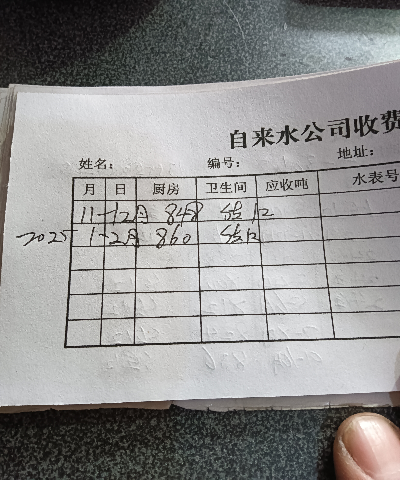 自来水公司收费
姓名： 编号： 地址：
月 日 厨房 卫生间 应收吨 水表号
11-12月 848 结12
2025 1-2月 860